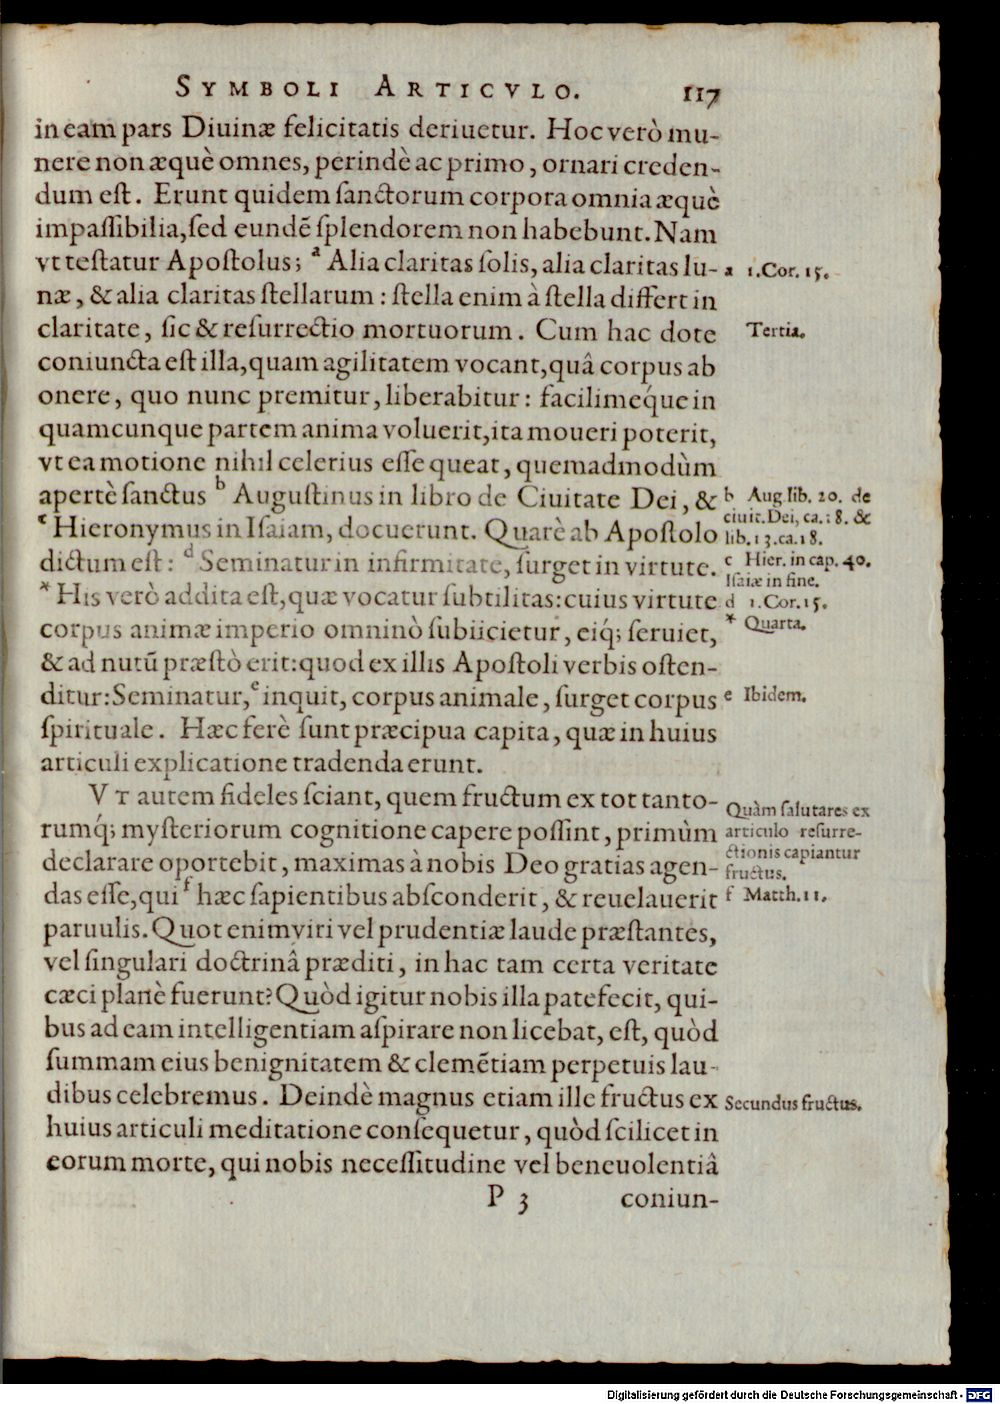 SYMBOLI ARTICVLO. 117
in eam pars Diuinæ felicitatis deriuetur. Hoc verò mu-
nere non æquè omnes, perindè ac primo, ornari creden-
dum eſt. Erunt quidem ſanctorum corpora omnia æquè
impaſſibilia, ſed eundē ſplendorem non habebunt. Nam
vt teſtatur Apoſtolus; ᵃ Alia claritas ſolis, alia claritas lu-
a 1. Cor. 15.
næ, & alia claritas ſtellarum: ſtella enim à ſtella differt in
claritate, ſic & reſurrectio mortuorum. Cum hac dote
Tertia.
coniuncta eſt illa, quam agilitatem vocant, quâ corpus ab
onere, quo nunc premitur, liberabitur: facilimeq́ue in
quamcunque partem anima voluerit, ita moueri poterit,
vt ea motione nihil celerius eſſe queat, quemadmodùm
apertè ſanctus ᵇ Auguſtinus in libro de Ciuitate Dei, &
b Aug. lib. 20. de
ciuit. Dei, ca. 18. &
ᶜ Hieronymus in Iſaiam, docuerunt. Quarè ab Apoſtolo
lib. 13. ca. 18.
dictum eſt: ᵈ Seminatur in infirmitate, ſurget in virtute.
c Hier. in cap. 40.
Iſaiæ in fine.
* His verò addita eſt, quæ vocatur ſubtilitas: cuius virtute
d 1. Cor. 15.
corpus animæ imperio omninò ſubiicietur, eiq́; ſeruiet,
* Quarta.
& ad nutū præſtò erit: quod ex illis Apoſtoli verbis oſten-
ditur: Seminatur, ᵉ inquit, corpus animale, ſurget corpus
e Ibidem.
ſpirituale. Hæc ferè ſunt præcipua capita, quæ in huius
articuli explicatione tradenda erunt.
VT autem fideles ſciant, quem fructum ex tot tanto-
Quàm ſalutares ex
rumq́; myſteriorum cognitione capere poſſint, primùm
articulo reſurre-
declarare oportebit, maximas à nobis Deo gratias agen-
ctionis capiantur
fructus.
das eſſe, qui ᶠ hæc ſapientibus abſconderit, & reuelauerit
f Matth. 11.
paruulis. Quot enim viri vel prudentiæ laude præſtantes,
vel ſingulari doctrinâ præditi, in hac tam certa veritate
cæci planè fuerunt? Quòd igitur nobis illa patefecit, qui-
bus ad eam intelligentiam aſpirare non licebat, eſt, quòd
ſummam eius benignitatem & clemētiam perpetuis lau-
dibus celebremus. Deindè magnus etiam ille fructus ex
Secundus fructus.
huius articuli meditatione conſequetur, quòd ſcilicet in
eorum morte, qui nobis neceſſitudine vel beneuolentiâ
P 3 coniun-
Digitalisierung gefördert durch die Deutsche Forschungsgemeinschaft - DFG